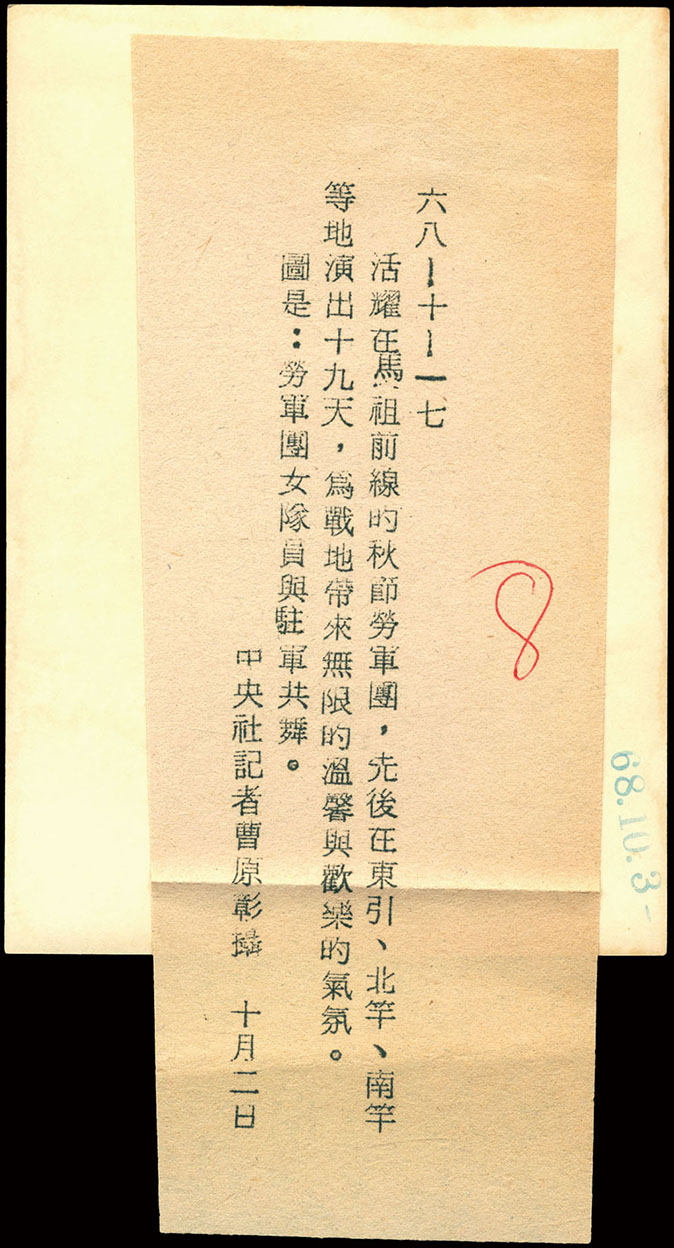 六八－十－一七
活耀在馬祖前線的秋節勞軍團，先後在東引、北竿、南竿
等地演出十九天，為戰地帶來無限的溫馨與歡樂的氣氛。
圖是：勞軍團女隊員與駐軍共舞。
中央社記者曹原彰攝　十月二日
8
68.10.3-